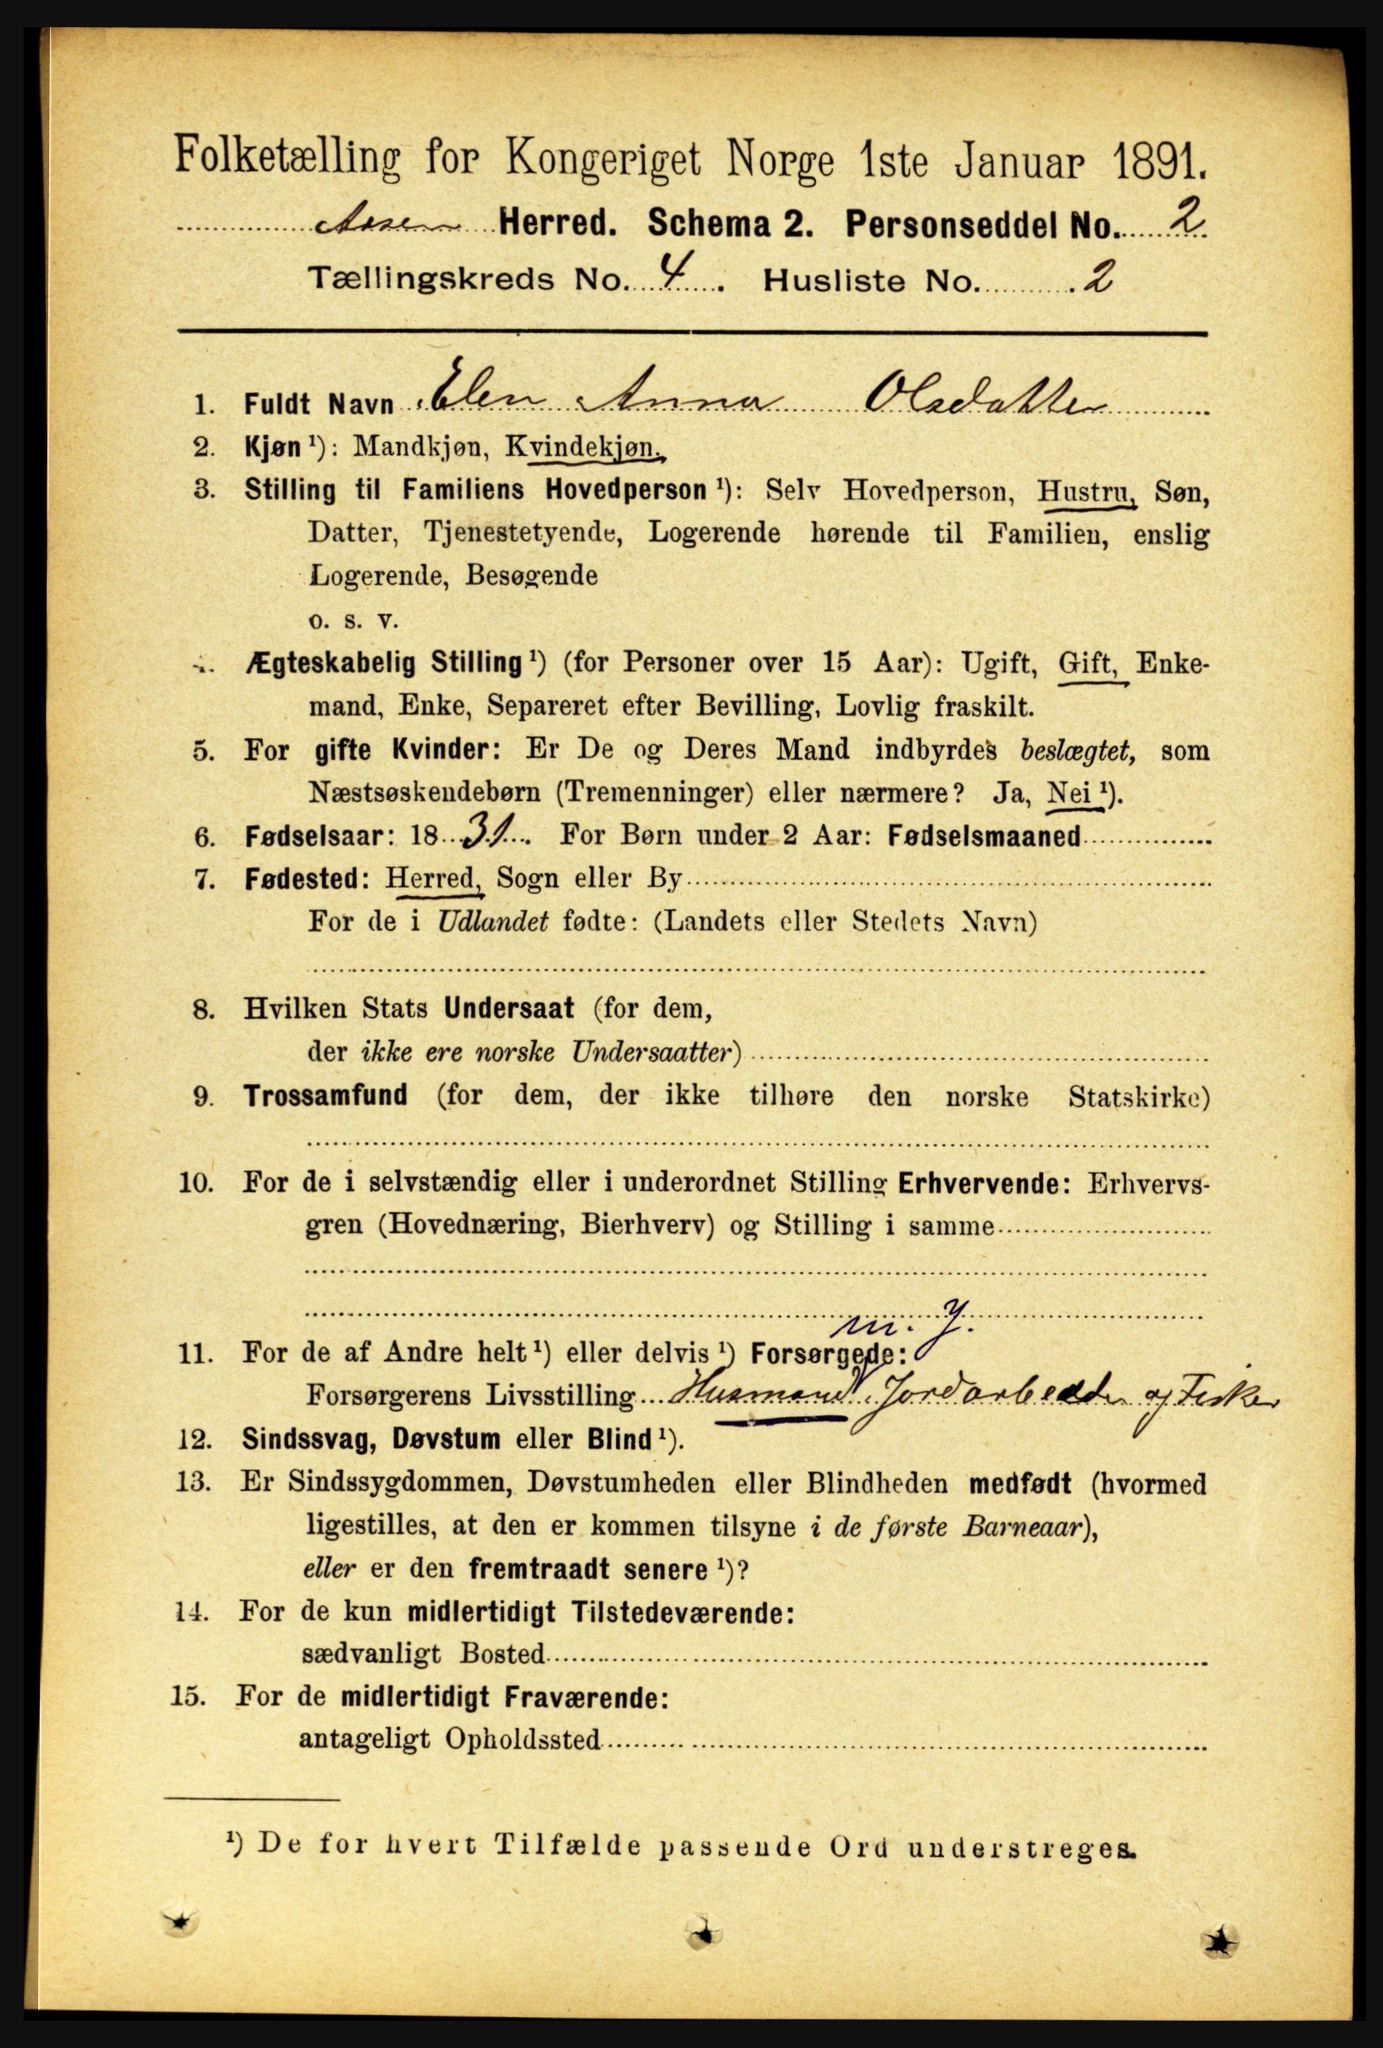 Folketælling for Kongeriget Norge 1ste Januar 1891.
Aasen Herred. Schema 2. Personseddel No. 2.
Tællingskreds No. 4. Husliste No. 2
1. Fuldt Navn Elen Anna Olsdatter
2. Kjøn ¹): Mandkjøn, Kvindekjøn.
3. Stilling til Familiens Hovedperson ¹): Selv Hovedperson, Hustru, Søn,
Datter, Tjenestetyende, Logerende hørende til Familien, enslig
Logerende, Besøgende
o. s. v.
4. Ægteskabelig Stilling ¹) (for Personer over 15 Aar): Ugift, Gift, Enke-
mand, Enke, Separeret efter Bevilling, Lovlig fraskilt.
5. For gifte Kvinder: Er De og Deres Mand indbyrdes beslægtet, som
Næstsøskendebørn (Tremenninger) eller nærmere? Ja, Nei ¹).
6. Fødselsaar: 1831. For Børn under 2 Aar: Fødselsmaaned
7. Fødested: Herred, Sogn eller By
For de i Udlandet fødte: (Landets eller Stedets Navn)
8. Hvilken Stats Undersaat (for dem,
der ikke ere norske Undersaatter)
9. Trossamfund (for dem, der ikke tilhøre den norske Statskirke)
10. For de i selvstændig eller i underordnet Stilling Erhvervende: Erhvervs-
gren (Hovednæring, Bierhverv) og Stilling i samme
m. J.
11. For de af Andre helt ¹) eller delvis ¹) Forsørgede:
Forsørgerens Livsstilling Husmand Jordarbeider og Fisker
12. Sindssvag, Døvstum eller Blind ¹).
13. Er Sindssygdommen, Døvstumheden eller Blindheden medfødt (hvormed
ligestilles, at den er kommen tilsyne i de første Barneaar),
eller er den fremtraadt senere ¹)?
14. For de kun midlertidigt Tilstedeværende:
sædvanligt Bosted
15. For de midlertidigt Fraværende:
antageligt Opholdssted
¹) De for hvert Tilfælde passende Ord understreges.